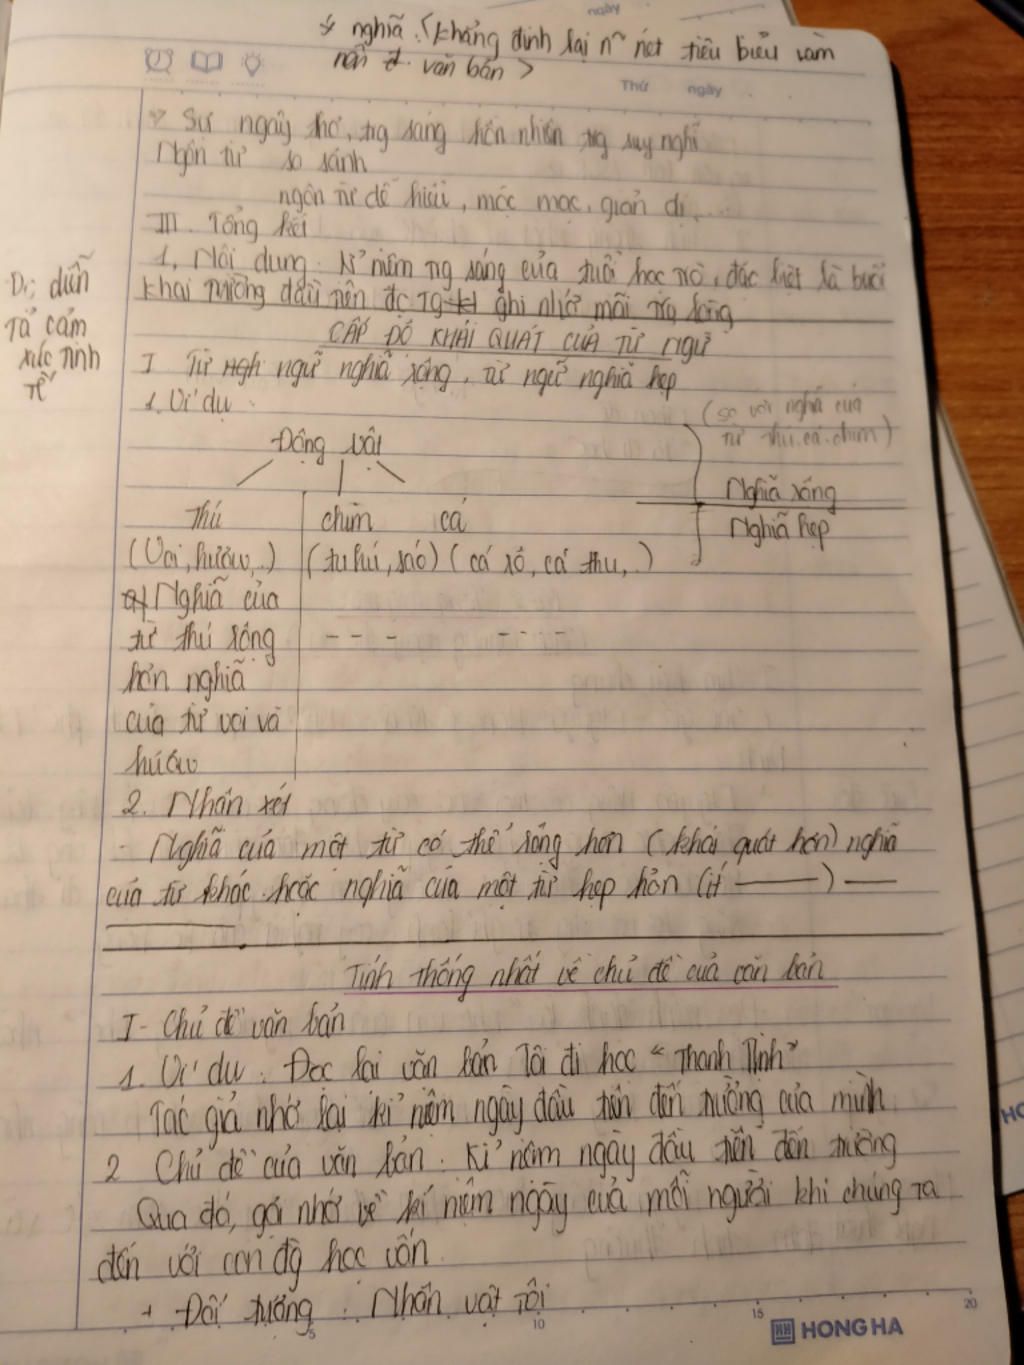 ngày
nghĩa (khẳng định lại nét tiêu biểu làm
nên văn bản >
Thứ ngày
Sự ngây thơ, trg sáng hồn nhiên trg suy nghĩ
Ngôn từ so sánh
ngôn từ dễ hiểu, mộc mạc, giản dị
III. Tổng kết
1, Nội dung: Kỉ niệm trg sáng của tuổi học trò, đặc biệt là buổi
khai trường đầu tiên đc TG ghi nhớ mãi trg lòng
Dc diễn
tả cảm
xúc tinh
tế
CẤP ĐỘ KHÁI QUÁT CỦA TỪ NGỮ
I Từ ngữ nghĩa rộng, từ ngữ nghĩa hẹp
1. Ví dụ:
(so với nghĩa của
từ thú, cá, chim)
Động vật
Nghĩa rộng
Nghĩa hẹp
Thú chim cá
(Voi, hươu,..) (tu hú, sáo) (cá rô, cá thu,..)
Nghĩa của
từ thú rộng - - - - - -
hơn nghĩa
của từ voi và
hươu
2. Nhận xét
- Nghĩa của một từ có thể rộng hơn (khái quát hơn) nghĩa
của từ khác hoặc nghĩa của một từ hẹp hơn (ít ——) —
Tính thống nhất về chủ đề của văn bản
I- Chủ đề văn bản
1. Ví dụ: Đọc lại văn bản Tôi đi học "Thanh Tịnh"
Tác giả nhớ lại kỉ niệm ngày đầu tiên đến trường của mình
2 Chủ đề của văn bản: Kỉ niệm ngày đầu tiên đến trường
Qua đó, gợi nhớ về kí niệm ngày của mỗi người khi chúng ta
đến với con đg học vấn.
+ Đối tượng: Nhân vật Tôi
5 10 15 20
HONG HA